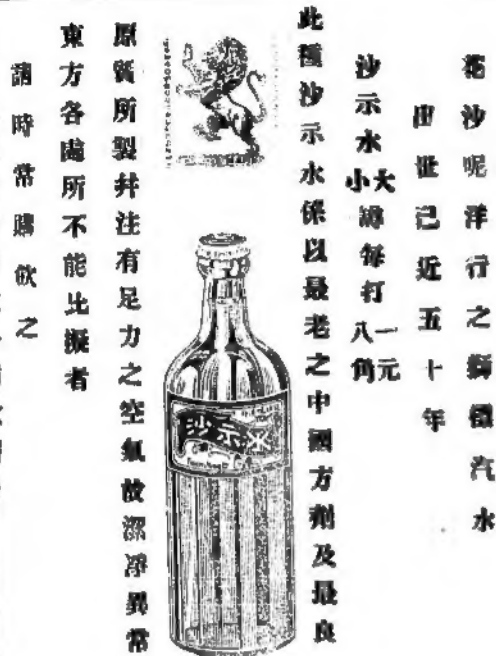 花沙呢洋行之獅僊汽水
出世已近五十年
沙示水大樽每打一元
小 八角
此種沙示水係以最老之中國方劑及最良
原質所製幷注有足力之空氣故潔净異常
東方各處所不能比擬者
請時常購飲之
沙示水